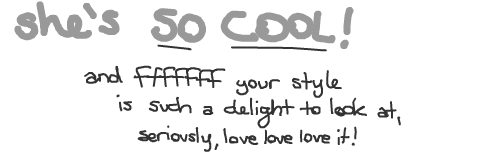 she's SO COOL!
and fffffff your style
is such a delight to look at,
seriously, love love love it!